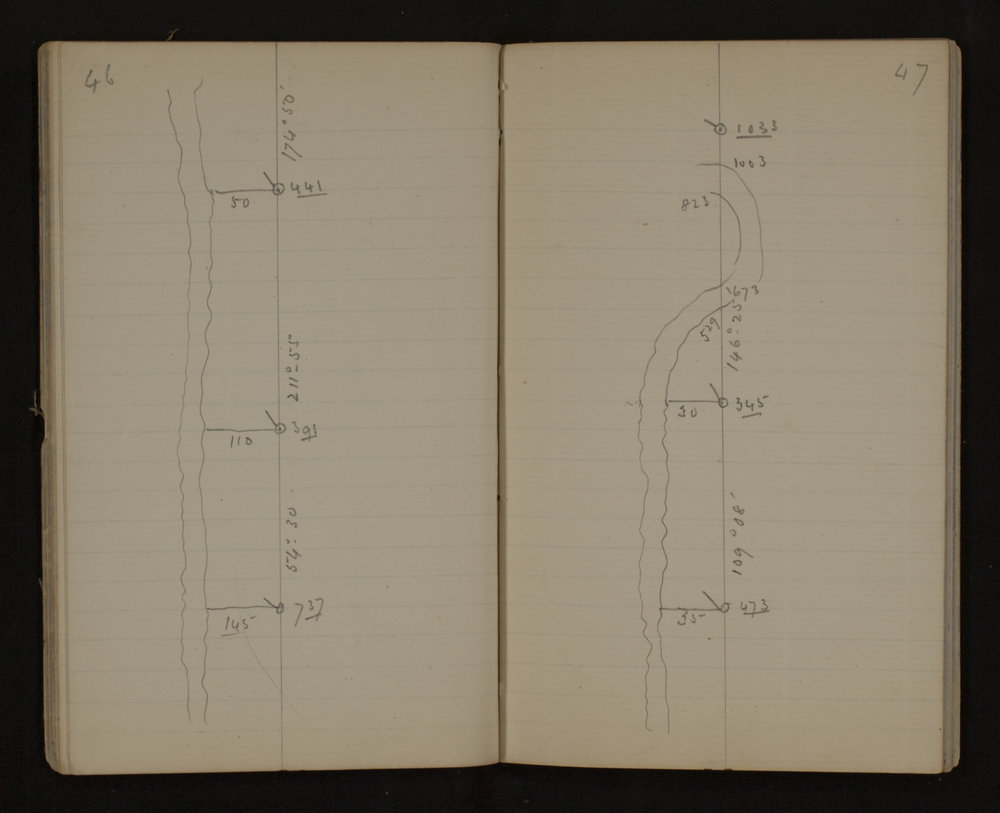 46
174° 50'
441
50
211°-55
391
110
54°-30
737
145
47
1033
1003
823
673
529
146°-25'
345
30
109°08'
473
35